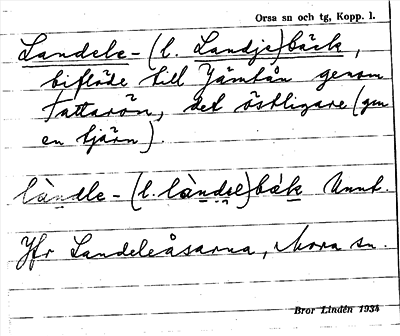 Orsa sn och tg, Kopp. l.
Landele- (l. Landje)bäck,
biflöde till Jämtån genom
Tattarön, det östligare (gm
en tjärn).
làndle- (l. làndʒe)bäk Unnt.
Jfr Landeleåsarna, Mora sn.
Bror Lindén 1934